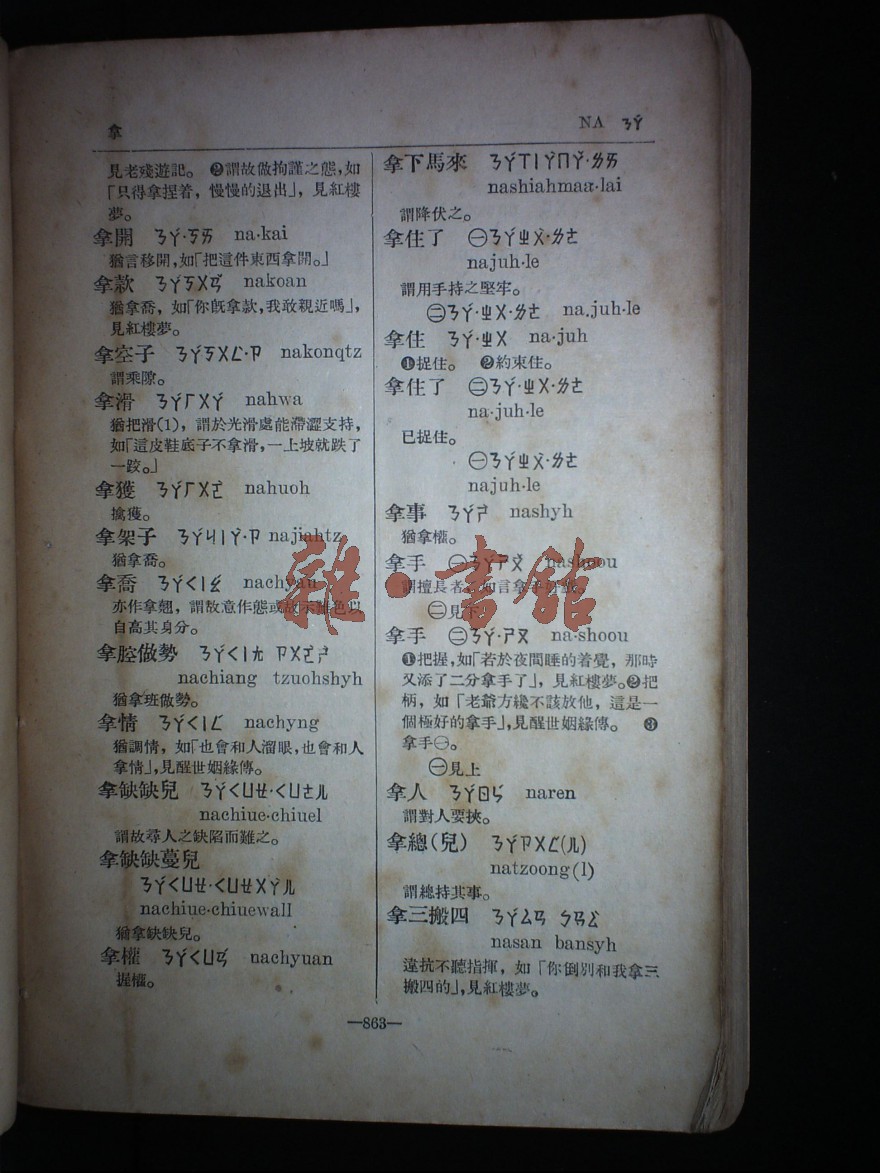 拿
NA ㄋㄚˊ
見老殘遊記。 ❷謂故做拘謹之態，如
「只得拿捏着，慢慢的退出」，見紅樓
夢。
拿開 ㄋㄚˊ·ㄎㄞ na·kai
猶言移開，如「把這件東西拿開。」
拿款 ㄋㄚˊㄎㄨㄢˇ nakoan
猶拿喬，如「你旣拿款，我敢親近嗎」，
見紅樓夢。
拿空子 ㄋㄚˊㄎㄨㄥˋ·ㄗ nakonqtz
謂乘隙。
拿滑 ㄋㄚˊㄏㄨㄚˊ nahwa
猶把滑(1)，謂於光滑處能滯澀支持，
如「這皮鞋底子不拿滑，一上坡就跌了
一跤。」
拿獲 ㄋㄚˊㄏㄨㄛˋ nahuoh
擒獲。
拿架子 ㄋㄚˊㄐㄧㄚˋ·ㄗ najiahtz
猶拿喬。
拿喬 ㄋㄚˊㄑㄧㄠˊ nachyau
亦作拿翹，謂故意作態或故示難色以
自高其身分。
拿腔做勢 ㄋㄚˊㄑㄧㄤ ㄗㄨㄛˋㄕˋ
nachiang tzuohshyh
猶拿班做勢。
拿情 ㄋㄚˊㄑㄧㄥˊ nachyng
猶調情，如「也會和人溜眼，也會和人
拿情」，見醒世姻緣傳。
拿缺缺兒 ㄋㄚˊㄑㄩㄝ·ㄑㄩㄝㄦ
nachiue·chiuel
謂故尋人之缺陷而難之。
拿缺缺蔓兒
ㄋㄚˊㄑㄩㄝ·ㄑㄩㄝㄨㄚˋㄦ
nachiue·chiuewall
猶拿缺缺兒。
拿權 ㄋㄚˊㄑㄩㄢˊ nachyuan
握權。
拿下馬來 ㄋㄚˊㄒㄧㄚˋㄇㄚˇ·ㄌㄞ
nashiahmaa·lai
謂降伏之。
拿住了 ㊀ㄋㄚˊㄓㄨˋ·ㄌㄜ
najuh·le
謂用手持之堅牢。
㊁ㄋㄚˊ·ㄓㄨ·ㄌㄜ na.juh·le
拿住 ㄋㄚˊ·ㄓㄨ na·juh
❶捉住。 ❷約束住。
拿住了 ㊁ㄋㄚˊ·ㄓㄨ·ㄌㄜ
na·juh·le
已捉住。
㊀ㄋㄚˊㄓㄨˋ·ㄌㄜ
najuh·le
拿事 ㄋㄚˊㄕˋ nashyh
猶拿權。
拿手 ㊀ㄋㄚˊㄕㄡˇ nashoou
謂擅長者，如言拿手好戲。
㊁見下
拿手 ㊁ㄋㄚˊ·ㄕㄡ na·shoou
❶把握，如「若於夜間睡的着覺，那時
又添了二分拿手了」，見紅樓夢。❷把
柄，如「老爺方纔不該放他，這是一
個極好的拿手」，見醒世姻緣傳。 ❸
拿手㊀。
㊀見上
拿人 ㄋㄚˊㄖㄣˊ naren
謂對人要挾。
拿總(兒) ㄋㄚˊㄗㄨㄥˇ(ㄦ)
natzoong(l)
謂總持其事。
拿三搬四 ㄋㄚˊㄙㄢ ㄅㄢㄙˋ
nasan bansyh
違抗不聽指揮，如「你倒別和我拿三
搬四的」，見紅樓夢。
—863—
雜·書館